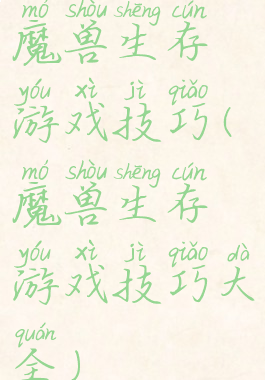 mó shòu shēng cún
魔兽生存
yóu xì jì qiǎo
游戏技巧(
mó shòu shēng cún
魔兽生存
yóu xì jì qiǎo dà
游戏技巧大
quán
全)